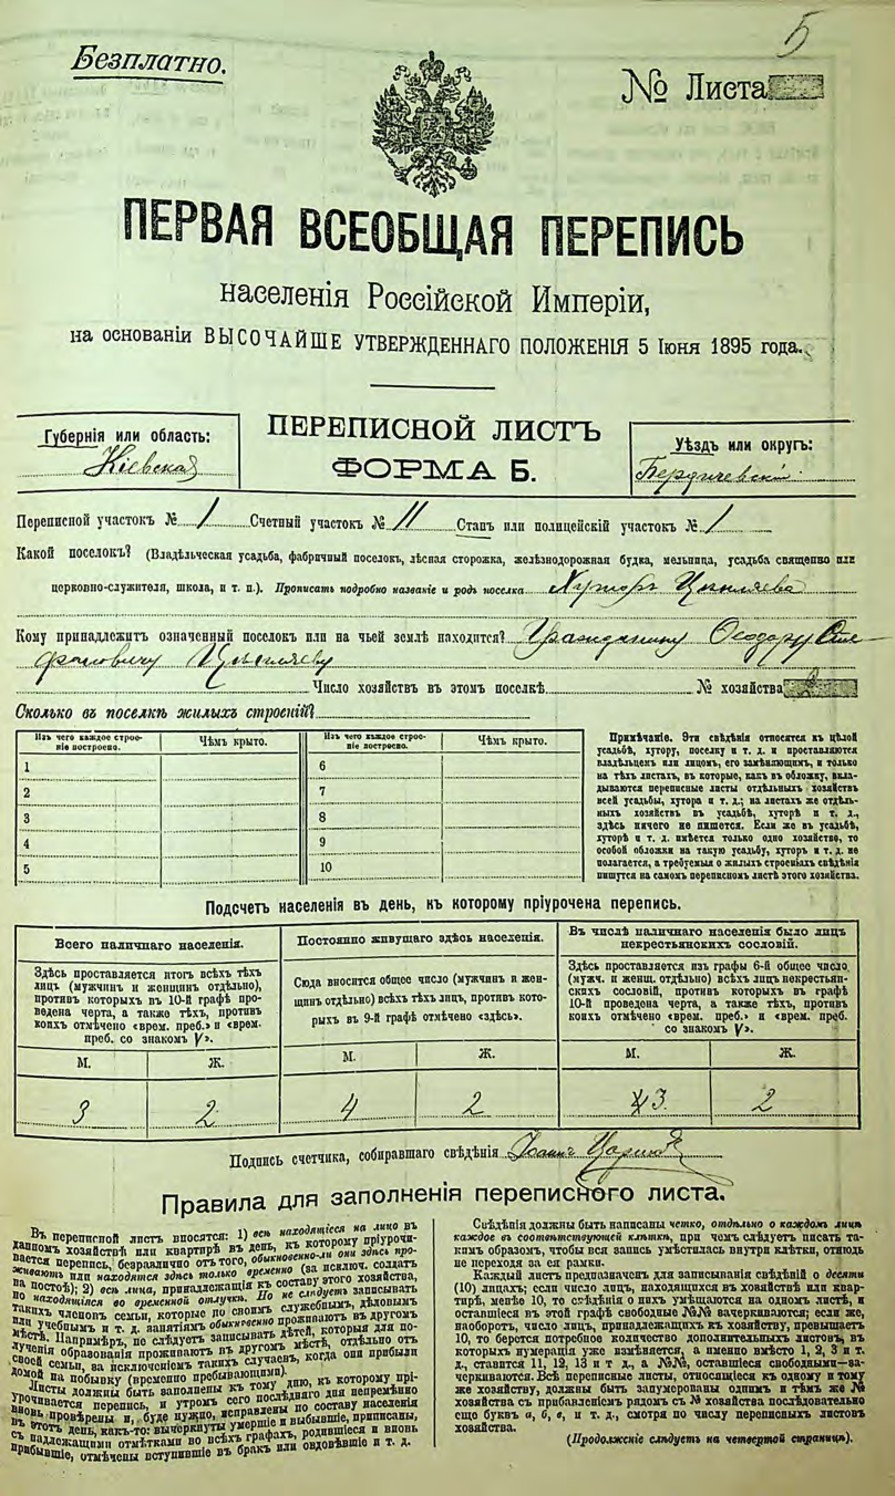 5
Безплатно.
№ Листа
ПЕРВАЯ ВСЕОБЩАЯ ПЕРЕПИСЬ
населенія Россійской Имперіи,
на основаніи ВЫСОЧАЙШЕ УТВЕРЖДЕННАГО ПОЛОЖЕНІЯ 5 Іюня 1895 года.
Губернія или область:
Кіевская
ПЕРЕПИСНОЙ ЛИСТЪ
ФОРМА Б.
Уѣздъ или округъ:
Бердичевскій
Переписной участокъ № 1 Счетный участокъ № 11 Станъ или полицейскій участокъ № 1
Какой поселокъ? (Владѣльческая усадьба, фабричный поселокъ, лѣсная сторожка, желѣзнодорожная будка, мельница, усадьба священно или
церковно-служителя, школа, и т. п.). Прописать подробно названіе и родъ поселка Хуторъ
Кому принадлежитъ означенный поселокъ или на чьей землѣ находится? Гражданину Ѳеодору Сте
фановичу
Число хозяйствъ въ этомъ поселкѣ № хозяйства
Сколько въ поселкѣ жилыхъ строеній?
Изъ чего каждое строе-
ніе построено.
Чѣмъ крыто.
Изъ чего каждое строе-
ніе построено.
Чѣмъ крыто.
1
6
2
7
3
8
4
9
5
10
Примѣчаніе. Эти свѣдѣнія относятся къ цѣлой
усадьбѣ, хутору, поселку и т. д. и проставляются
владѣльцемъ или лицомъ, его замѣняющимъ, и только
на тѣхъ листахъ, въ которые, какъ въ обложку, вкла-
дываются переписные листы отдѣльныхъ хозяйствъ
всей усадьбы, хутора и т. д.; на листахъ же отдѣль-
ныхъ хозяйствъ въ усадьбѣ, хуторѣ и т. д.,
здѣсь ничего не пишется. Если же въ усадьбѣ,
хуторѣ и т. д. имѣется только одно хозяйство, то
особой обложки на такую усадьбу, хуторъ и т. д. не
полагается, а требуемыя о жилыхъ строеніяхъ свѣдѣнія
пишутся на самомъ переписномъ листѣ этого хозяйства.
Подсчетъ населенія въ день, къ которому пріурочена перепись.
Всего наличнаго населенія.
Здѣсь проставляется итогъ всѣхъ тѣхъ
лицъ (мужчинъ и женщинъ отдѣльно),
противъ которыхъ въ 10-й графѣ про-
ведена черта, а также тѣхъ, противъ
коихъ отмѣчено «врем. преб.» и «врем.
преб. со знакомъ V».
Постоянно живущаго здѣсь населенія.
Сюда вносится общее число (мужчинъ и жен-
щинъ отдѣльно) всѣхъ тѣхъ лицъ, противъ кото-
рыхъ въ 9-й графѣ отмѣчено «здѣсь».
Въ числѣ наличнаго населенія было лицъ
некрестьянскихъ сословій.
Здѣсь проставляется изъ графы 6-й общее число
(мужч. и женщ. отдѣльно) всѣхъ лицъ некрестьян-
скихъ сословій, противъ которыхъ въ графѣ
10-й проведена черта, а также тѣхъ, противъ
коихъ отмѣчено «врем. преб.» и «врем. преб.
со знакомъ V».
М. Ж. М. Ж. М. Ж.
3 2 4 2 3 2
Подпись счетчика, собиравшаго свѣдѣнія
Правила для заполненія переписного листа.
Въ переписной листъ вносятся: 1) всѣ находящіеся на лицо въ
данномъ хозяйствѣ или квартирѣ въ день, къ которому пріурочи-
вается перепись, безразлично отъ того, обыкновенно-ли они здѣсь про-
живаютъ или находятся здѣсь только временно (за исключ. солдатъ
на постоѣ); 2) всѣ лица, принадлежащія къ составу этого хозяйства,
но находящіяся во временной отлучкѣ. Но не слѣдуетъ записывать
такихъ членовъ семьи, которые по своимъ служебнымъ, дѣловымъ
или учебнымъ и т. д. занятіямъ обыкновенно проживаютъ въ другомъ
мѣстѣ. Напримѣръ, не слѣдуетъ записывать дѣтей, которыя для по-
лученія образованія проживаютъ въ другомъ мѣстѣ, отдѣльно отъ
своей семьи, за исключеніемъ такихъ случаевъ, когда они прибыли
домой на побывку (временно пребывающими).
Листы должны быть заполнены къ тому дню, къ которому прі-
урочивается перепись, и утромъ сего послѣдняго дня непремѣнно
вновь провѣрены и, буде нужно, исправлены по составу населенія
въ этотъ день, какъ-то: вычеркнуты умершіе и выбывшіе, приписаны,
съ надлежащими отмѣтками во всѣхъ графахъ, родившіеся и вновь
прибывшіе, отмѣчены вступившіе въ бракъ или овдовѣвшіе и т. д.
Свѣдѣнія должны быть написаны четко, отдѣльно о каждомъ лицѣ
каждое въ соотвѣтствующей клѣткѣ, при чемъ слѣдуетъ писать та-
кимъ образомъ, чтобы вся запись умѣстилась внутри клѣтки, отнюдь
не переходя за ея рамки.
Каждый листъ предназначенъ для записыванія свѣдѣній о десяти
(10) лицахъ; если число лицъ, находящихся въ хозяйствѣ или квар-
тирѣ, менѣе 10, то свѣдѣнія о нихъ умѣщаются на одномъ листѣ, и
оставшіеся въ этой графѣ свободные №№ вычеркиваются; если же,
наоборотъ, число лицъ, принадлежащихъ къ хозяйству, превышаетъ
10, то берется потребное количество дополнительныхъ листовъ, въ
которыхъ нумерація уже измѣняется, а именно вмѣсто 1, 2, 3 и т.
д., ставится 11, 12, 13 и т. д., а №№, оставшіеся свободными—за-
черкиваются. Всѣ переписные листы, относящіеся къ одному и тому
же хозяйству, должны быть занумерованы однимъ и тѣмъ же №
хозяйства съ прибавленіемъ рядомъ съ № хозяйства послѣдовательно
еще буквъ а, б, в, и т. д., смотря по числу переписныхъ листовъ
хозяйства.
(Продолженіе слѣдуетъ на четвертой страницѣ).